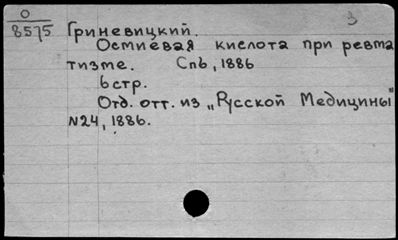 О
8575
З
Гриневицкий.
Осмиевая кислота при ревма
тизме. Спб, 1886
6 стр.
Отд. отт. из „Русской Медицины"
N24, 1886.